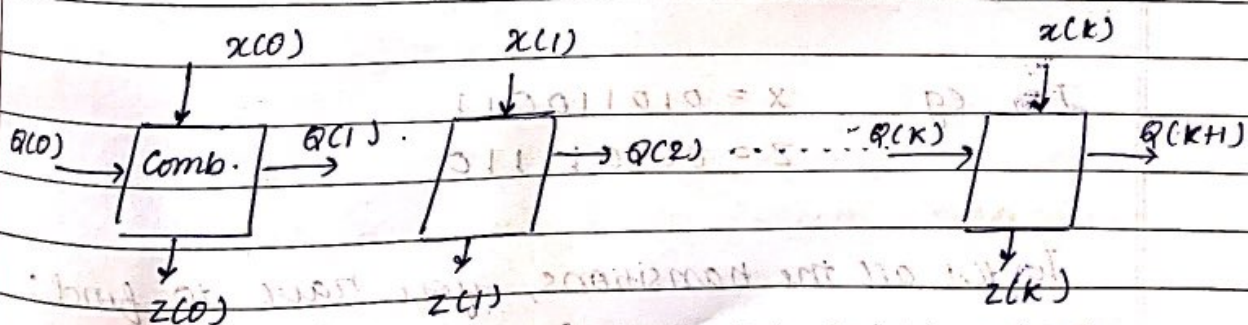 x(0) x(1) x(k)
Q(0) Comb. Q(1) . Q(2) ....... Q(k) Q(k+1)
z(0) z(1) z(k)